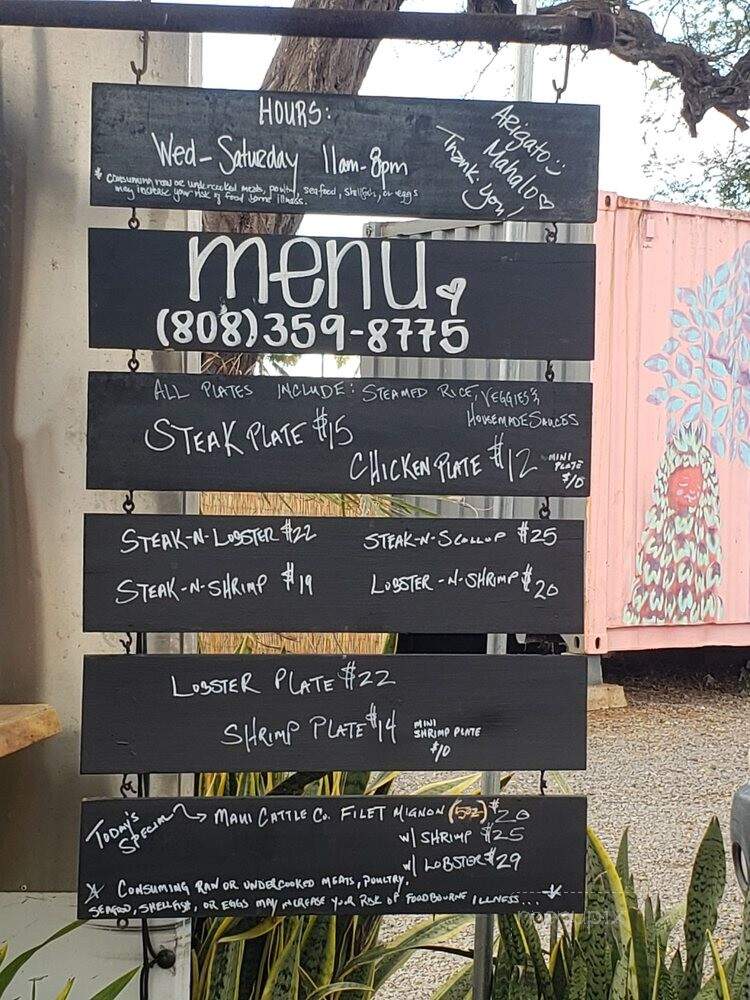 HOURS:
Wed-Saturday 11am-8pm
* consuming raw or undercooked meats, poultry, seafood, shellfish, or eggs
may increase your risk of food borne illness.
Arigato :)
Mahalo ♡
Thank you!
menu ♡
(808)359-8775
ALL PLATES INCLUDE: STEAMED RICE, VEGGIES &
HOUSEMADE SAUCES
STEAK PLATE $15
CHICKEN PLATE $12
MINI
PLATE
$10
STEAK-N-LOBSTER $22
STEAK-N-SCALLOP $25
STEAK-N-SHRIMP $19
LOBSTER-N-SHRIMP $20
LOBSTER PLATE $22
SHRIMP PLATE $14
MINI
SHRIMP PLATE
$10
TODAY'S
SPECIAL
MAUI CATTLE CO. FILET MIGNON (5oz) $20
w/ SHRIMP $25
w/ LOBSTER $29
* CONSUMING RAW OR UNDERCOOKED MEATS, POULTRY,
SEAFOOD, SHELLFISH, OR EGGS MAY INCREASE YOUR RISK OF FOODBOURNE ILLNESS... *